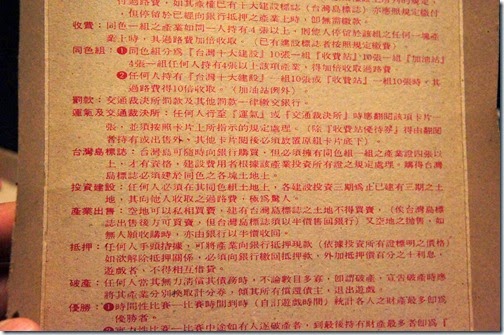 付過路費,如其產權已有十大建設標誌(台灣島標誌)亦應照規定繳付
,但停留於已經向銀行抵押之產業上時,即無需繳款。
收費:同色一組之產業如同一人持有4張以上,則他人停留於該組之任何一塊產
業上時,其過路費加倍收取。(已有建設標誌者按照規定繳費)。
同色組:❶同色組分為『台灣十大建設』10張一組『收費站』10張一組『加油站』
4張一組任何人持有4張以上該項產業,得加倍收取過路費。
❷任何人持有『台灣十大建設』一組10張或『收費站』一組10張時,其
過路費得10倍收取。(加油站例外)。
罰款:交通裁決所罰款及其他罰款一律繳交銀行。
運氣及交通裁決所:任何人行至『運氣』或『交通裁決所』時應翻閱該項卡片一
張,並須按照卡片上所指示的規定處理。(除『收費站優待券』得由翻閱
者持有或出售外,其他卡片閱後必須放置原組卡片底下)。
台灣島標誌:台灣島可隨時向銀行購買,但必須擁有同色一組之產業證四張以
上,才有資格,建設費用者根據該產業投資所有證之規定處理,購得台灣
島標誌必須建於同色之各塊土地上。
投資建設:任何人必須在其同色組土地上,各建設投資二期為止已建有三期之土
地,其向他人收取之過路費,極為驚人。
產業出售:空地可以私相買賣,建有台灣島標誌之土地不得買賣,(俟台灣島標
誌出售後方可買賣,但台灣島標誌之出售以半價售回銀行)又空地之拋售,如
無人願收購時,亦由銀行以半價收回。
抵押:任何人手頭拮据,可將產業向銀行抵押現款(依據投資所有證標明之價格)
如欲解除抵押關係,必須向銀行繳回抵押款,外加抵押價百分之十利息,
遊戲者,不得相互借貸。
破產:任何人當其無力清償其債務時,不論數目多寡,即謂破產,宣告破產時應
將其產業分別換取計分券,傾其所有償還債主,退出遊戲。
優勝:❶時間性比賽—比賽時間到時(自訂遊戲時間)統計各人之財產最多即為
優勝者。
性比賽—比賽中途如有人遂破產者,到最後持有財產最多者即為